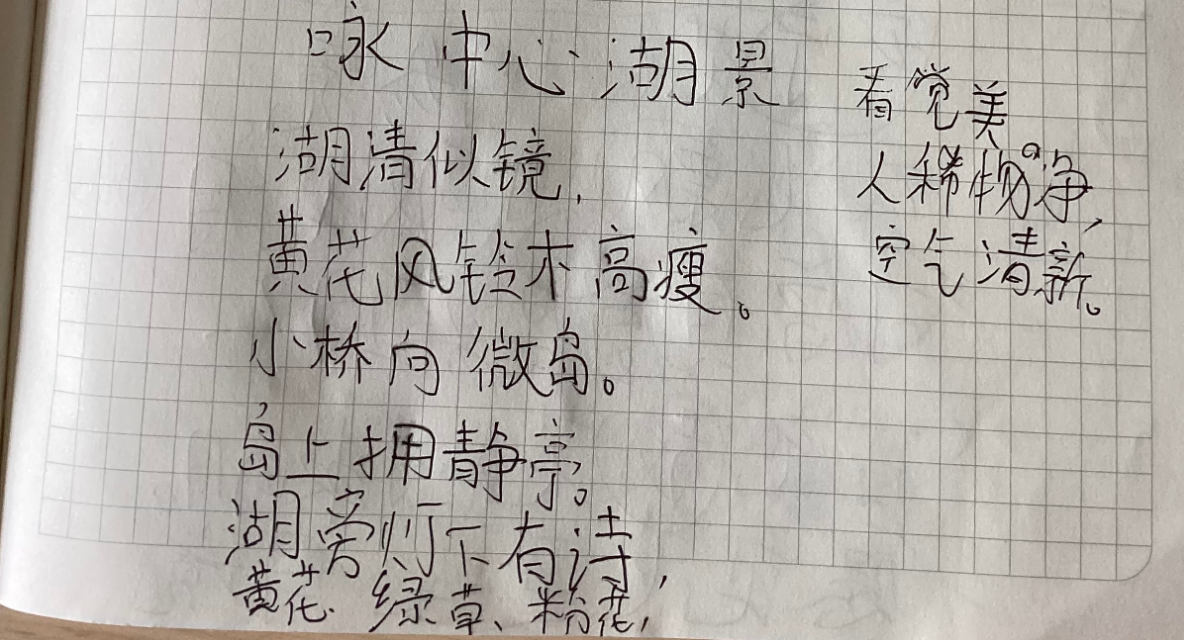 咏 中心湖景
湖清似镜,
黄花风铃木高瘦。
小桥向微岛。
岛上拥静亭。
湖旁灯下有诗,
黄花、绿草、粉花,
看觉美
人稀物净,
空气清新。